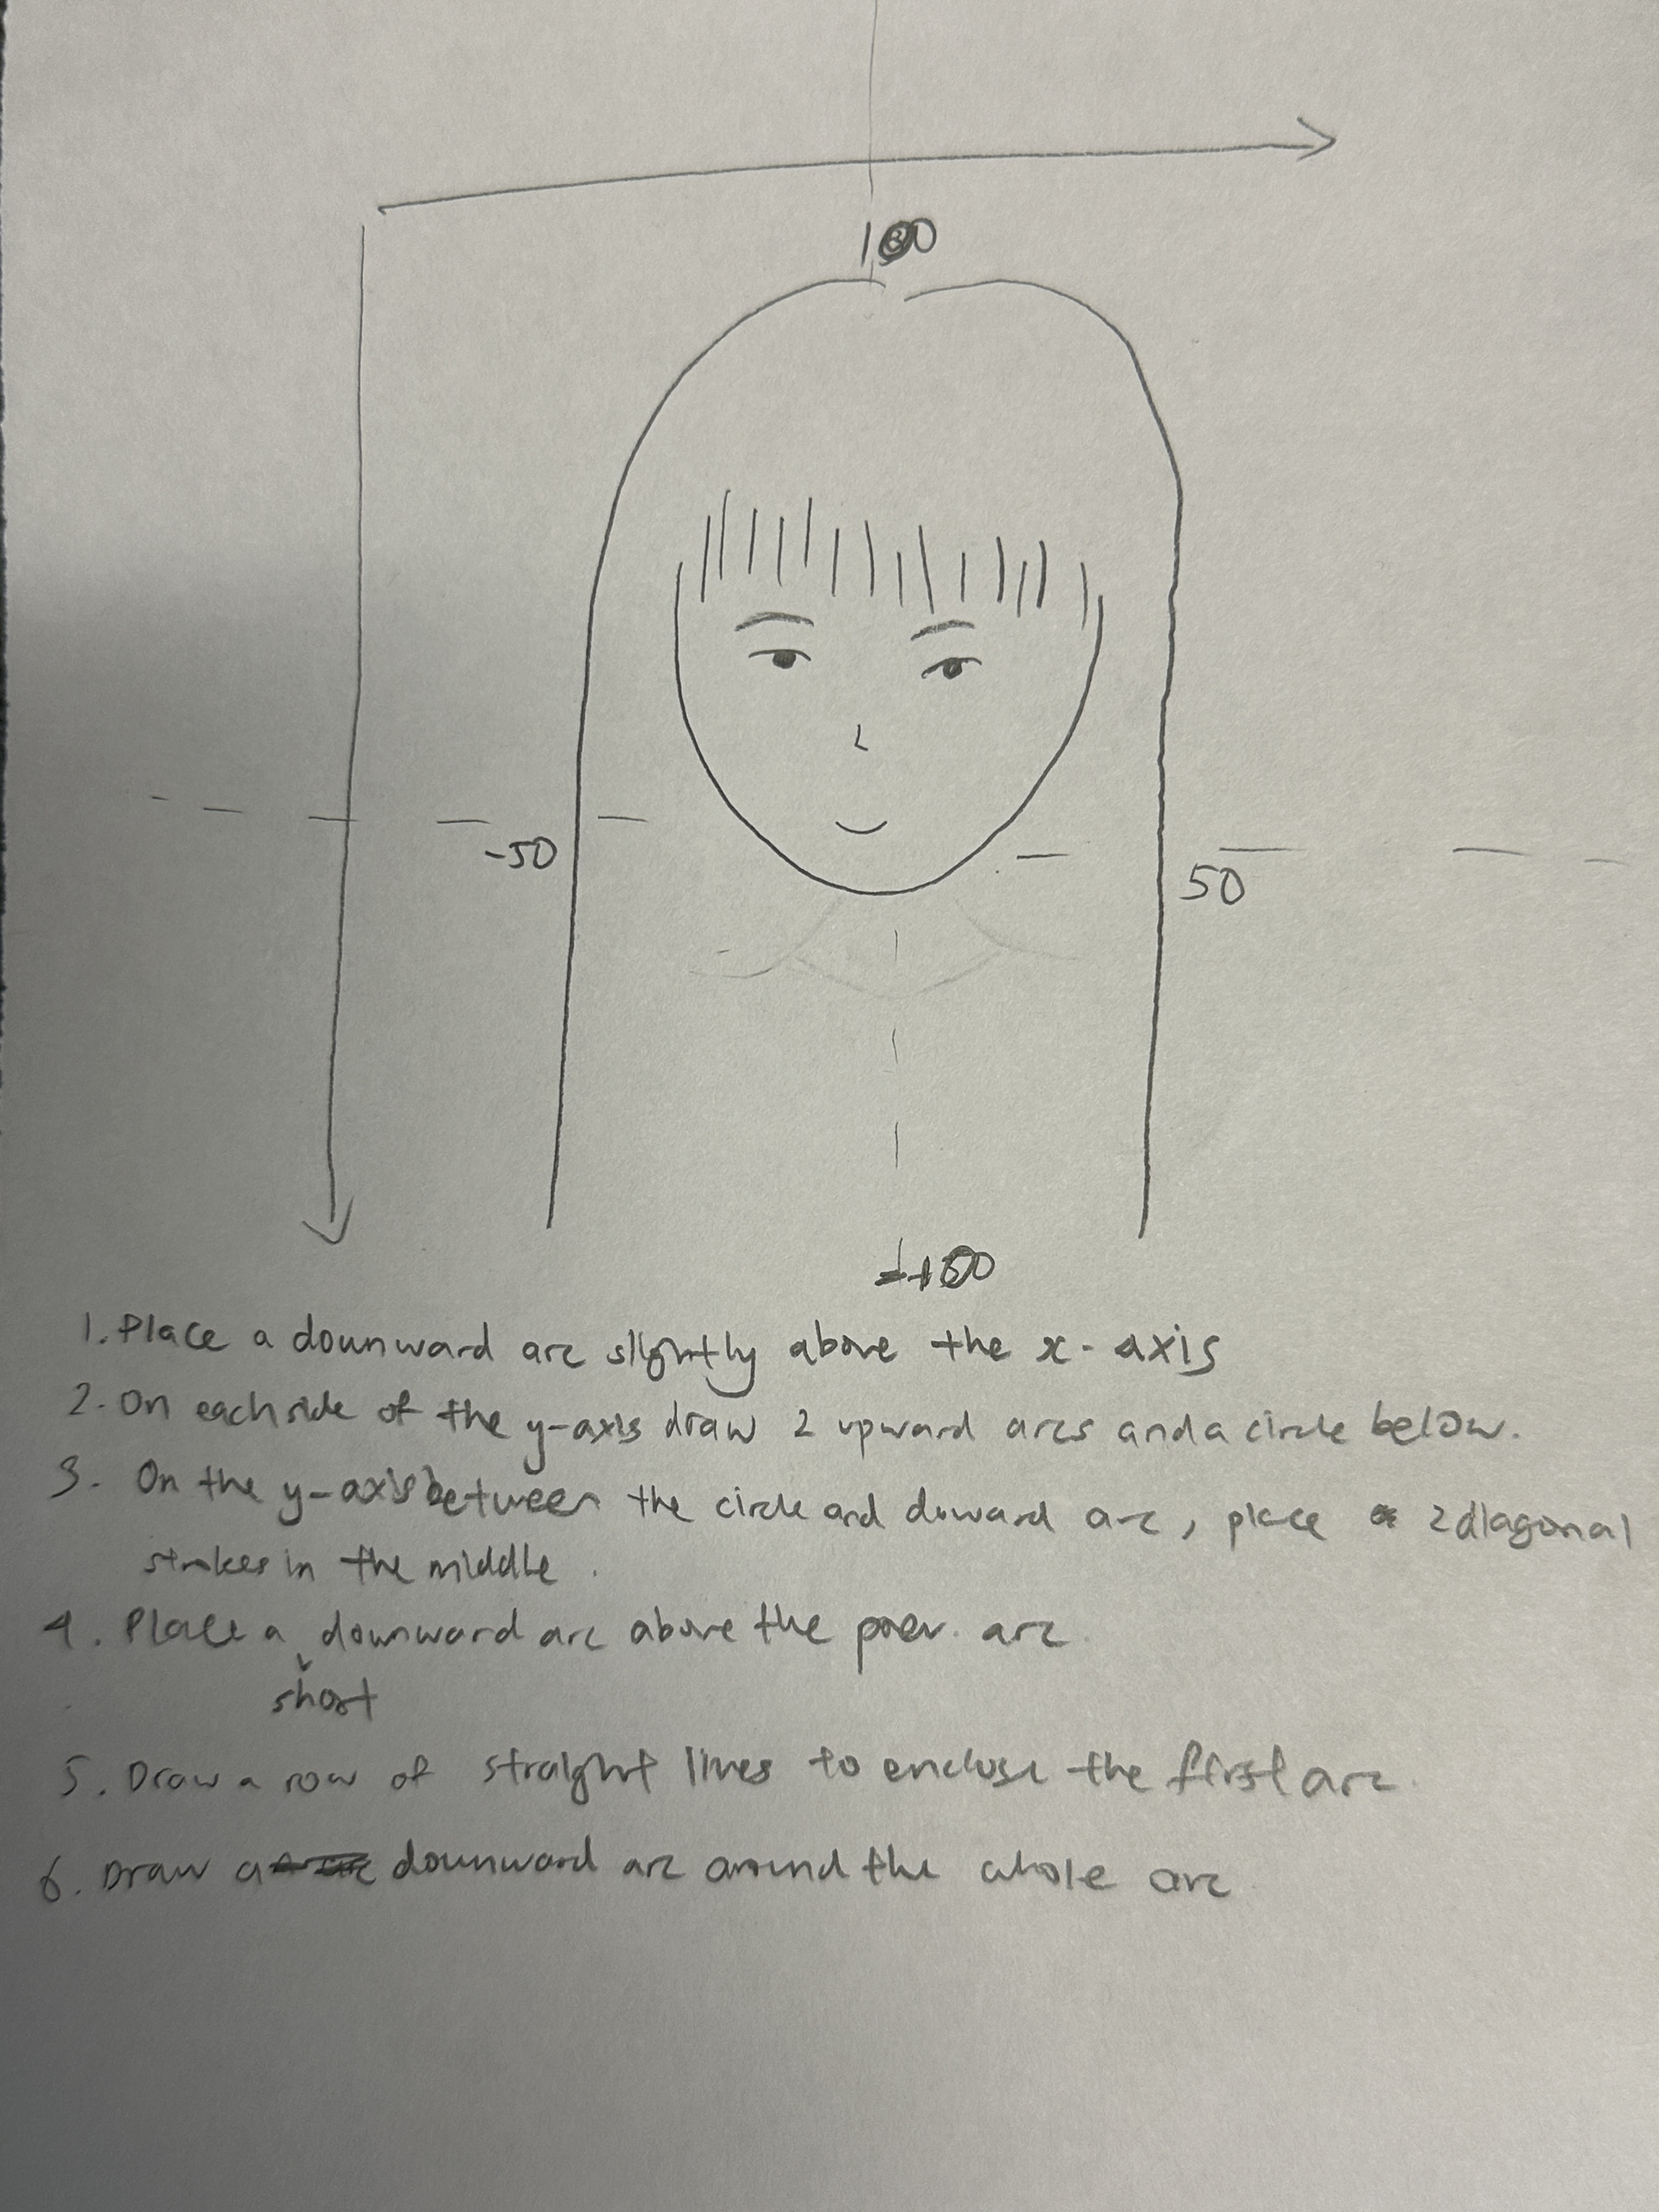 100
-50
50
-100
1. Place a downward arc slightly above the x-axis
2. On each side of the y-axis draw 2 upward arcs and a circle below.
3. On the y-axis between the circle and doward arc, place 2 diagonal
strokes in the middle.
4. Place a downward arc above the prev. arc
short
5. Draw a row of straight lines to enclose the first arc.
6. Draw a downward arc around the whole arc